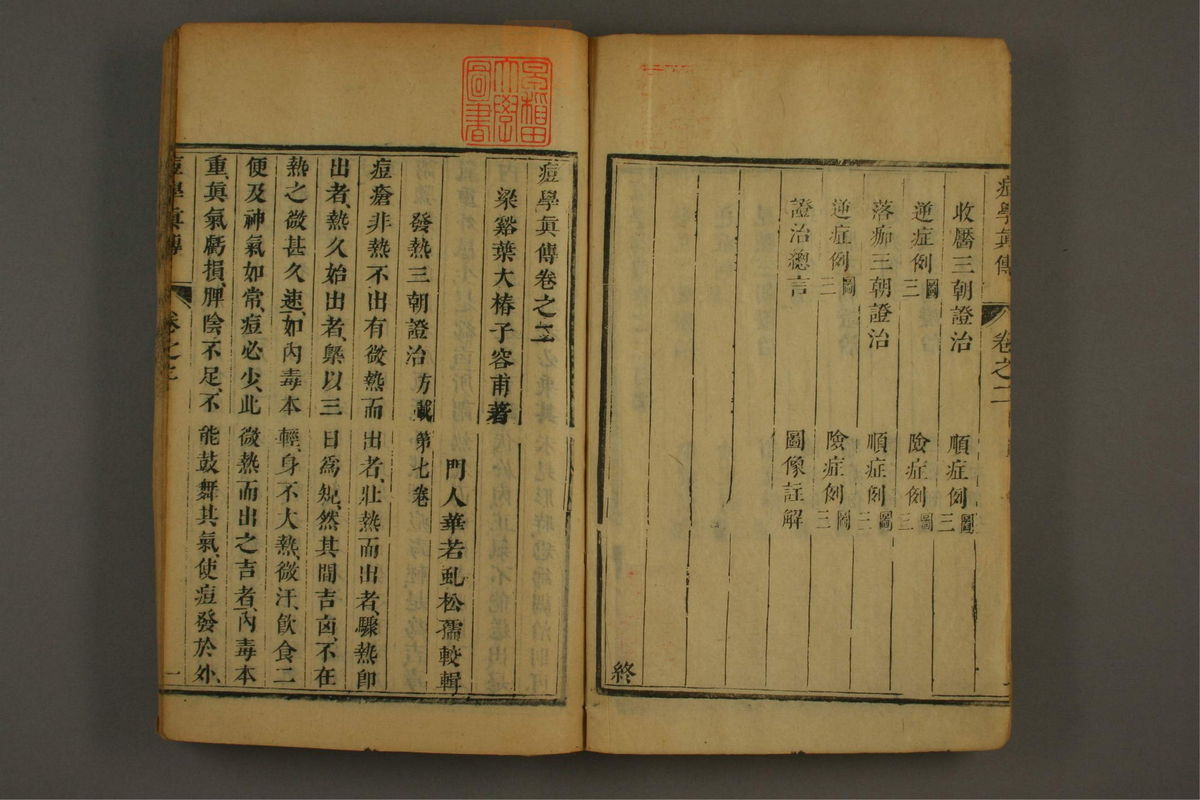 痘學眞傳 卷之二
收靨三朝證治 順症例三圖
逆症例三圖 險症例三圖
落痂三朝證治 順症例三圖
逆症例三圖 險症例三圖
證治總言 圖像註解
終
早稲田
大學
圖書
痘學眞傳卷之二
梁谿葉大椿子容甫著
門人華若虬松孺較輯
發熱三朝證治方載第七卷
痘瘡非熱不出有微熱而出者、壯熱而出者、驟熱即
出者、熱久始出者、槩以三日爲䂓、然其間吉凶、不在
熱之微甚久速、如內毒本輕、身不大熱、微汗、飮食二
便及神氣如常、痘必少、此微熱而出之吉者、內毒本
重、眞氣虧損、脾陰不足、不能鼓舞其氣、使痘發於外、
痘學眞傳 卷之二 一